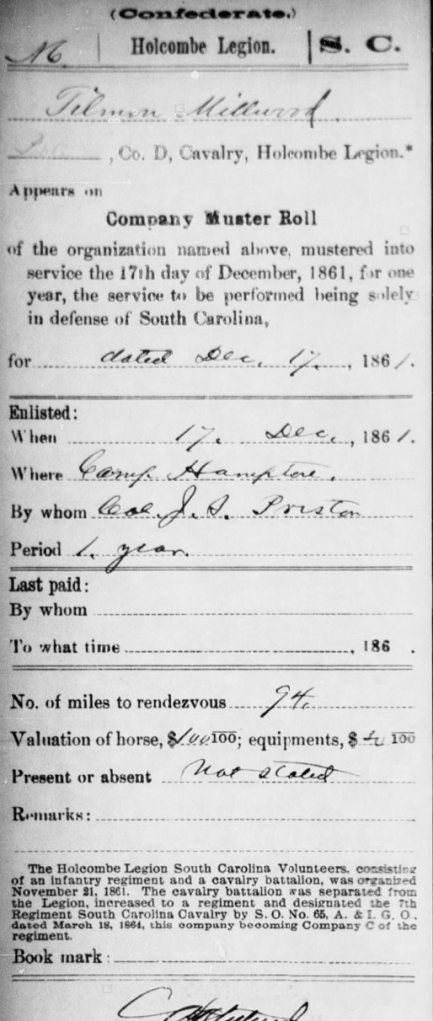 (Confederate.)
M | Holcombe Legion. | S. C.
Tilmon Millwood.
, Co. D, Cavalry, Holcombe Legion.*
Appears on
Company Muster Roll
of the organization named above, mustered into
service the 17th day of December, 1861, for one
year, the service to be performed being solely
in defense of South Carolina,
for dated Dec. 17., 1861.
Enlisted:
When 17. Dec., 1861.
Where Camp Hampton.
By whom Col. J. S. Preston
Period 1. year.
Last paid:
By whom
To what time , 186 .
No. of miles to rendezvous 94.
Valuation of horse, $100 100; equipments, $ 100
Present or absent Not stated
Remarks:
The Holcombe Legion South Carolina Volunteers, consisting
of an infantry regiment and a cavalry battalion, was organized
November 21, 1861. The cavalry battalion was separated from
the Legion, increased to a regiment and designated the 7th
Regiment South Carolina Cavalry by S. O. No. 65, A. & I. G. O.,
dated March 18, 1864, this company becoming Company C of the
regiment.
Book mark: